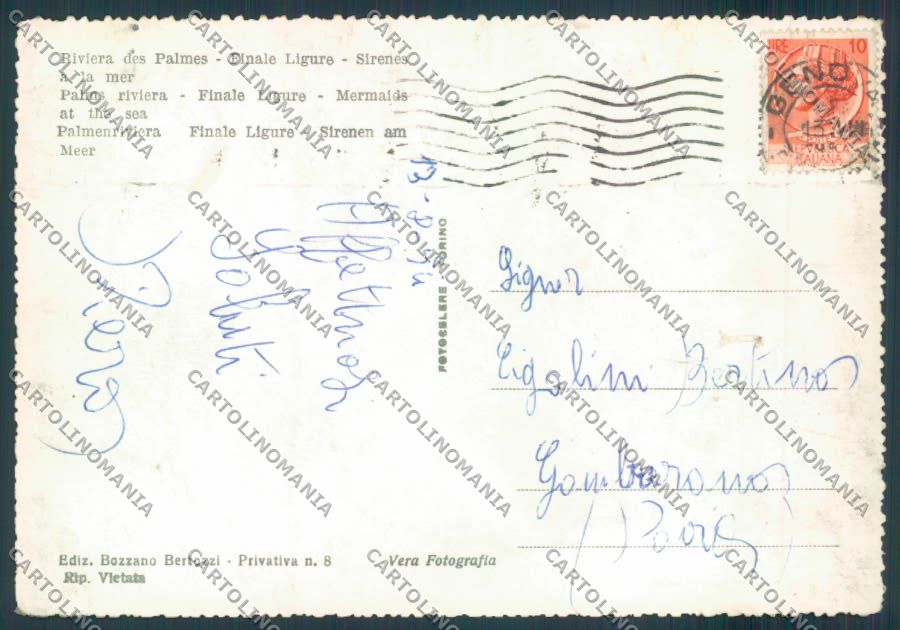 Riviera des Palmes - Finale Ligure - Sirenes
a la mer
Palms riviera - Finale Ligure - Mermaids
at the sea
Palmenriviera Finale Ligure - Sirenen am
Meer
LIRE 10
GENOVA
REPVBBLICA
ITALIANA
13-8-54
Affettuosi
Saluti
Piero
FOTOCELERE TORINO
Signor
Cigolini Bertino
Gambarana
(Pavia)
Ediz. Bozzano Bertozzi - Privativa n. 8
Rip. Vietata
Vera Fotografia
CARTOLINOMANIA